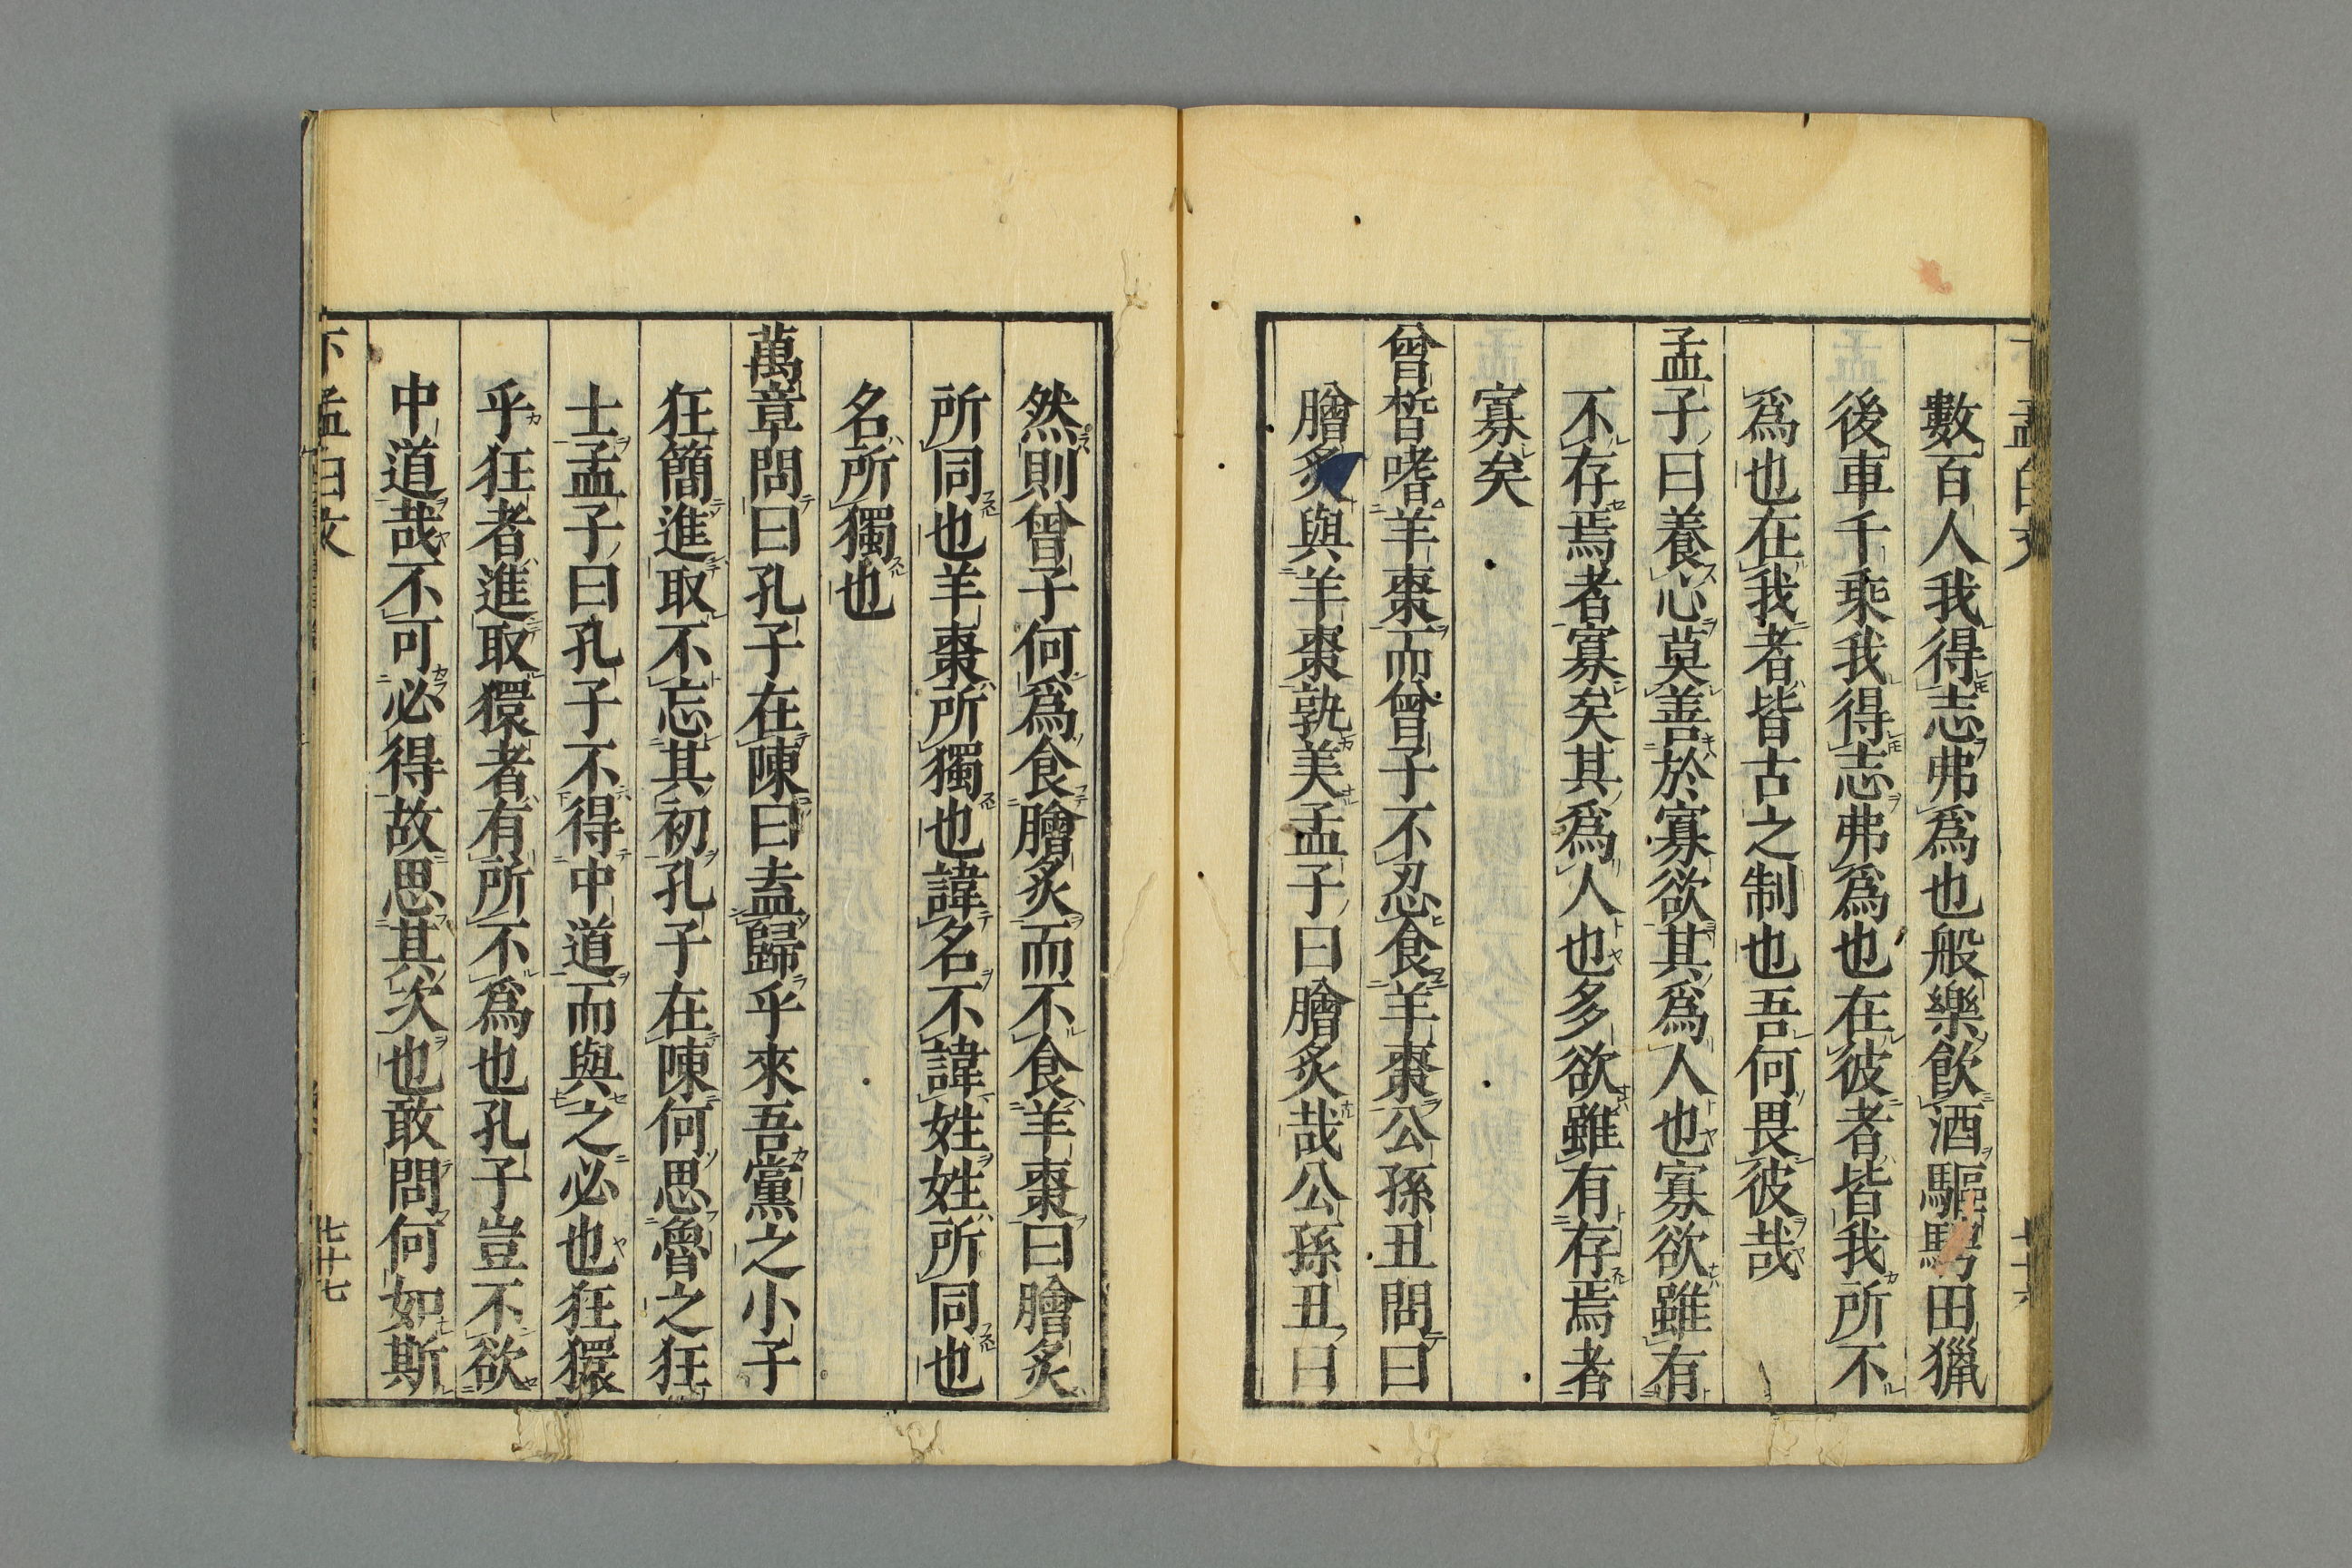 數百人我得志弗爲也般樂飮酒驅騁田獵
後車千乘我得志弗爲也在彼者皆我所不
爲也在我者皆古之制也吾何畏彼哉
孟子曰養心莫善於寡欲其爲人也寡欲雖有
不存焉者寡矣其爲人也多欲雖有存焉者
寡矣
曾皙嗜羊棗而曾子不忍食羊棗公孫丑問曰
膾炙與羊棗孰美孟子曰膾炙哉公孫丑曰
然則曾子何爲食膾炙而不食羊棗曰膾炙
所同也羊棗所獨也諱名不諱姓姓所同也
名所獨也
萬章問曰孔子在陳曰盍歸乎來吾黨之小子
狂簡進取不忘其初孔子在陳何思魯之狂
士孟子曰孔子不得中道而與之必也狂獧
乎狂者進取獧者有所不爲也孔子豈不欲
中道哉不可必得故思其次也敢問何如斯
下孟白文
七十七